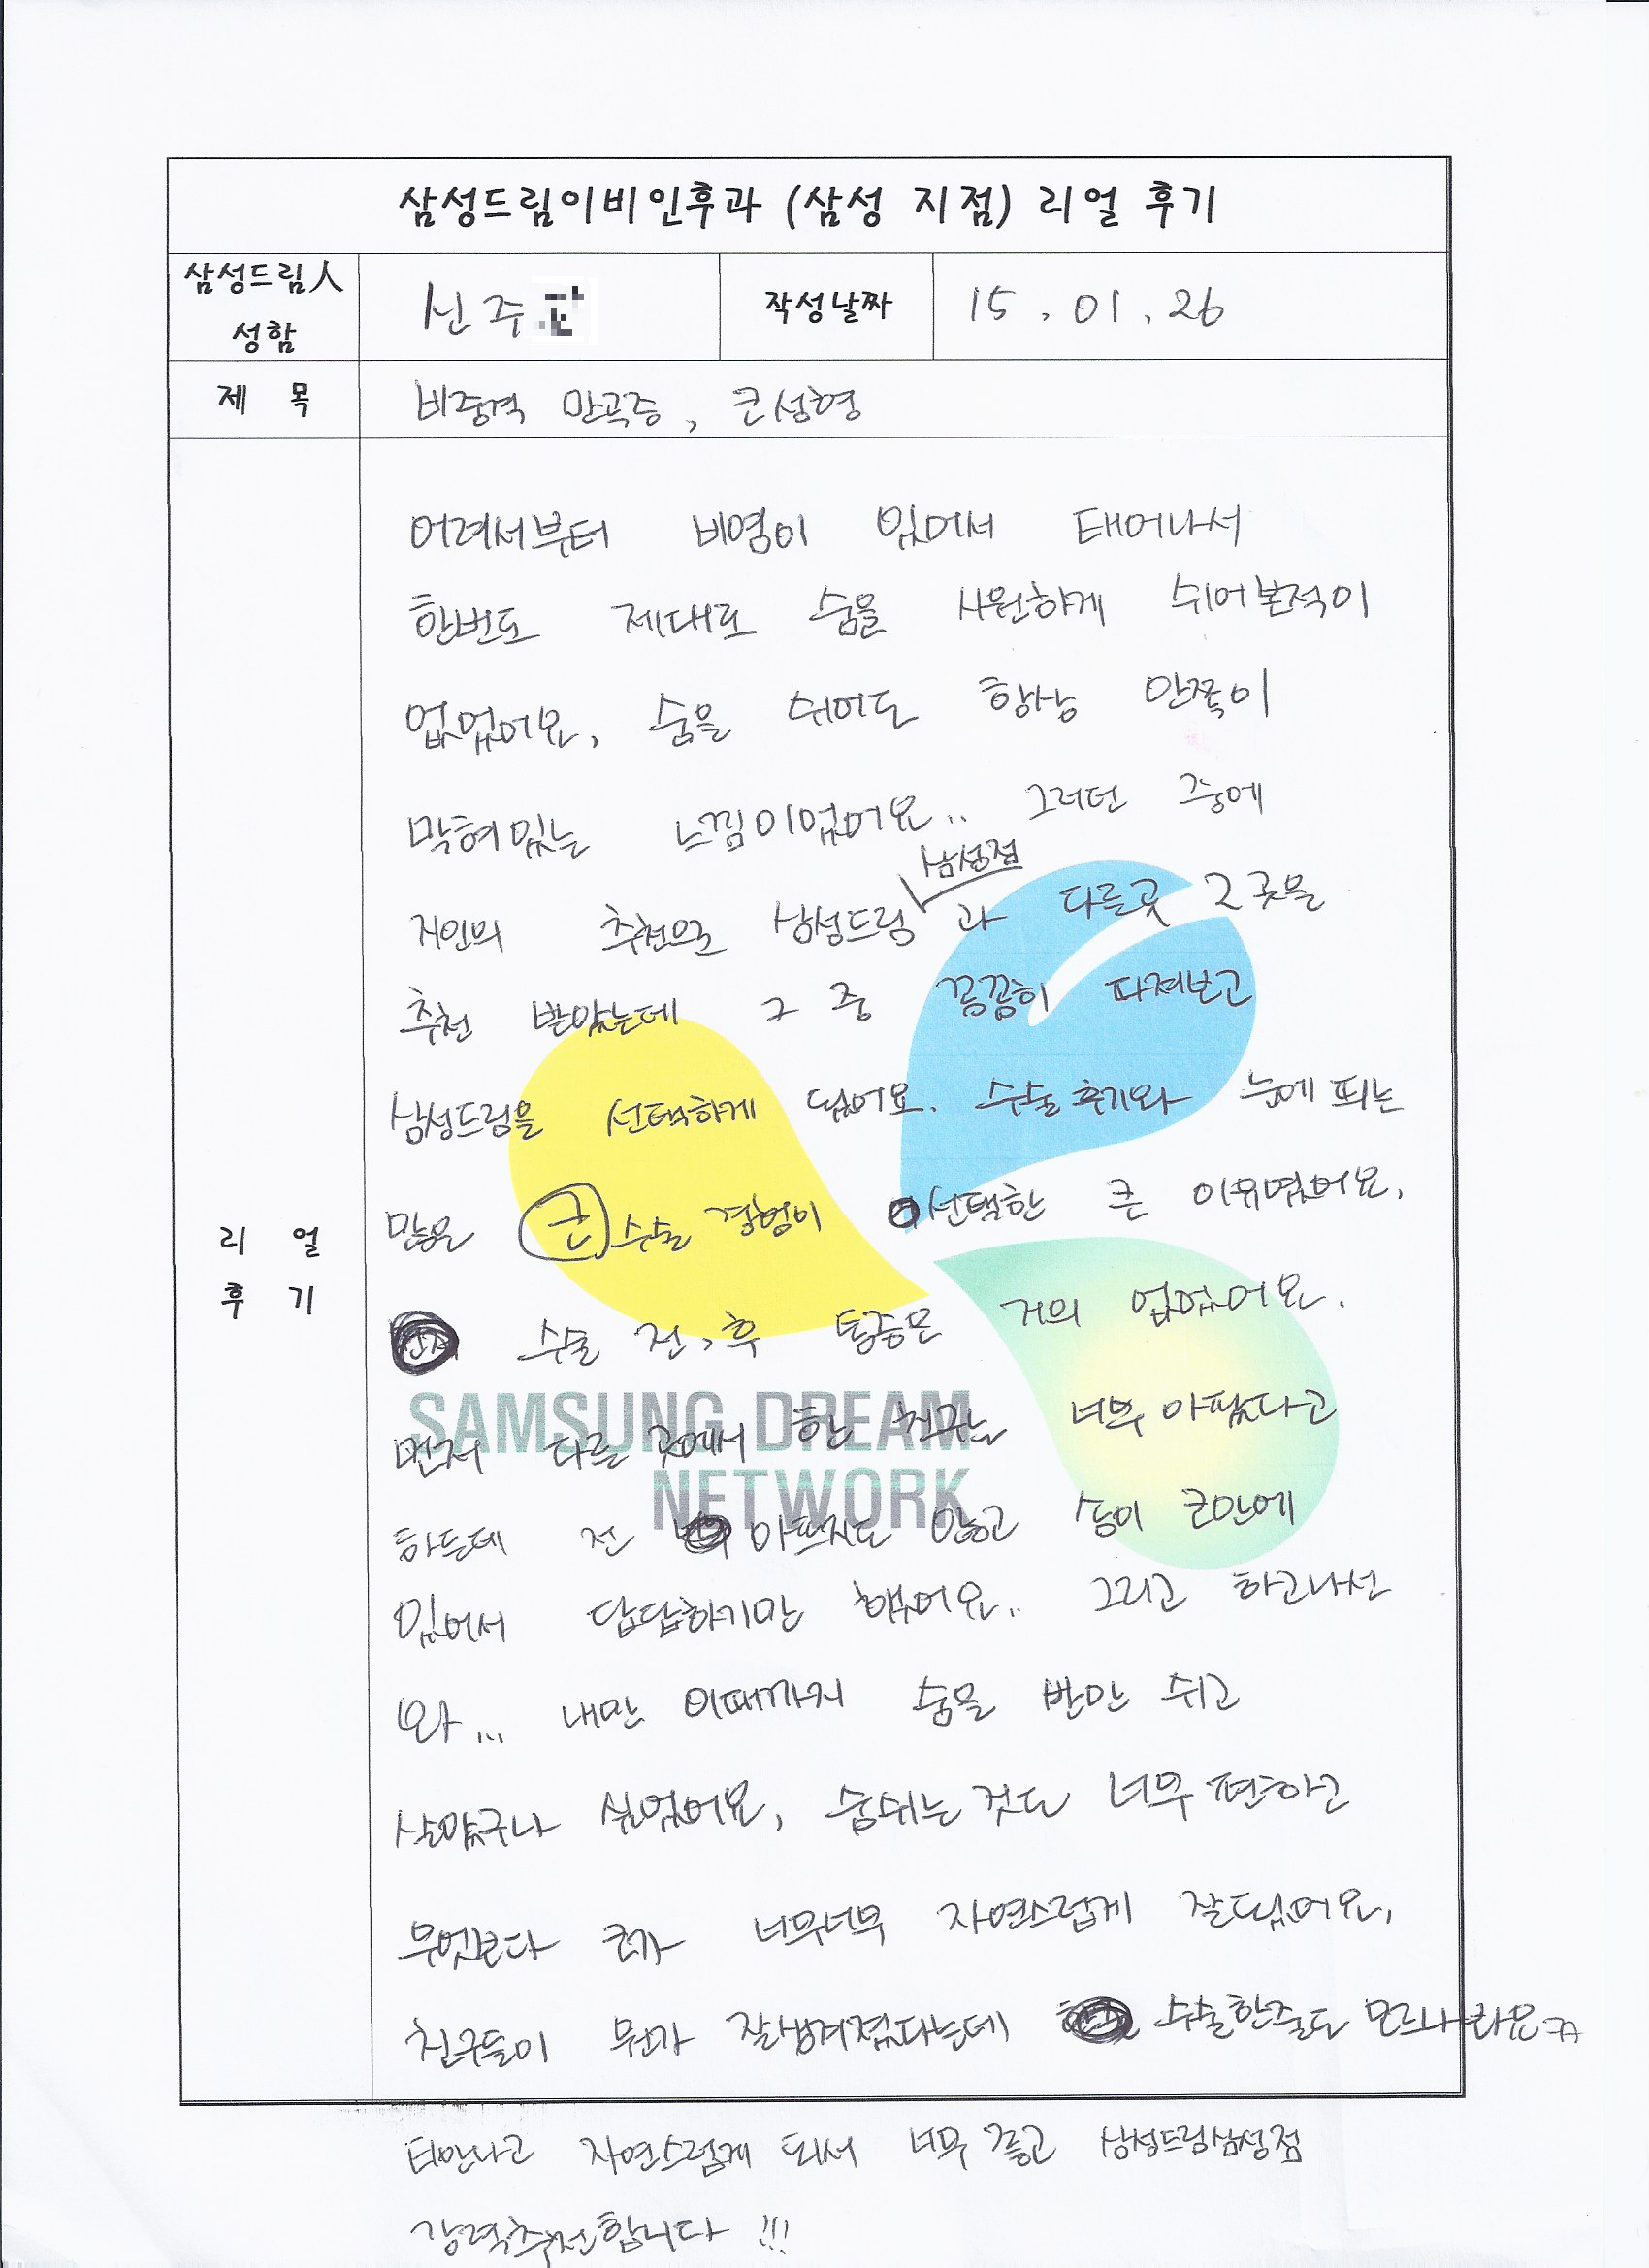 삼성드림이비인후과 (삼성 지점) 리얼 후기
삼성드림人 성함
신주
작성날짜
15. 01. 26
제 목
비중격 만곡증, 코성형
리 얼
후 기
어려서부터 비염이 있어서 태어나서
한번도 제대로 숨을 시원하게 쉬어본적이
없었어요, 숨을 쉬어도 항상 안쪽이
막혀있는 느낌이였어요.. 그러던 중에
삼성점
지인의 추천으로 삼성드림과 다른곳 2곳을
추천 받았는데 그 중 꼼꼼히 따져보고
삼성드림을 선택하게 됬어요. 수술후기와 눈에 띄는
많은 코 수술 경험이 선택한 큰 이유였어요.
수술 전, 후 통증은 거의 없었어요.
먼저 다른 곳에서 한 친구는 너무 아팠다고
하든데 전 아프지도 않고 솜이 코안에
있어서 답답하기만 했어요.. 그리고 하고나선
와... 내만 이때까지 숨을 반만 쉬고
살았구나 싶었어요, 숨쉬는 것도 너무 편하고
무엇보다 코가 너무너무 자연스럽게 잘됬어요,
친구들이 뭔가 잘생겨졌다는데 수술한줄도 모르나라요ㅋㅋ
티안나고 자연스럽게 되서 너무 좋고 삼성드림삼성점
강력추천합니다 !!!
SAMSUNG DREAM
NETWORK